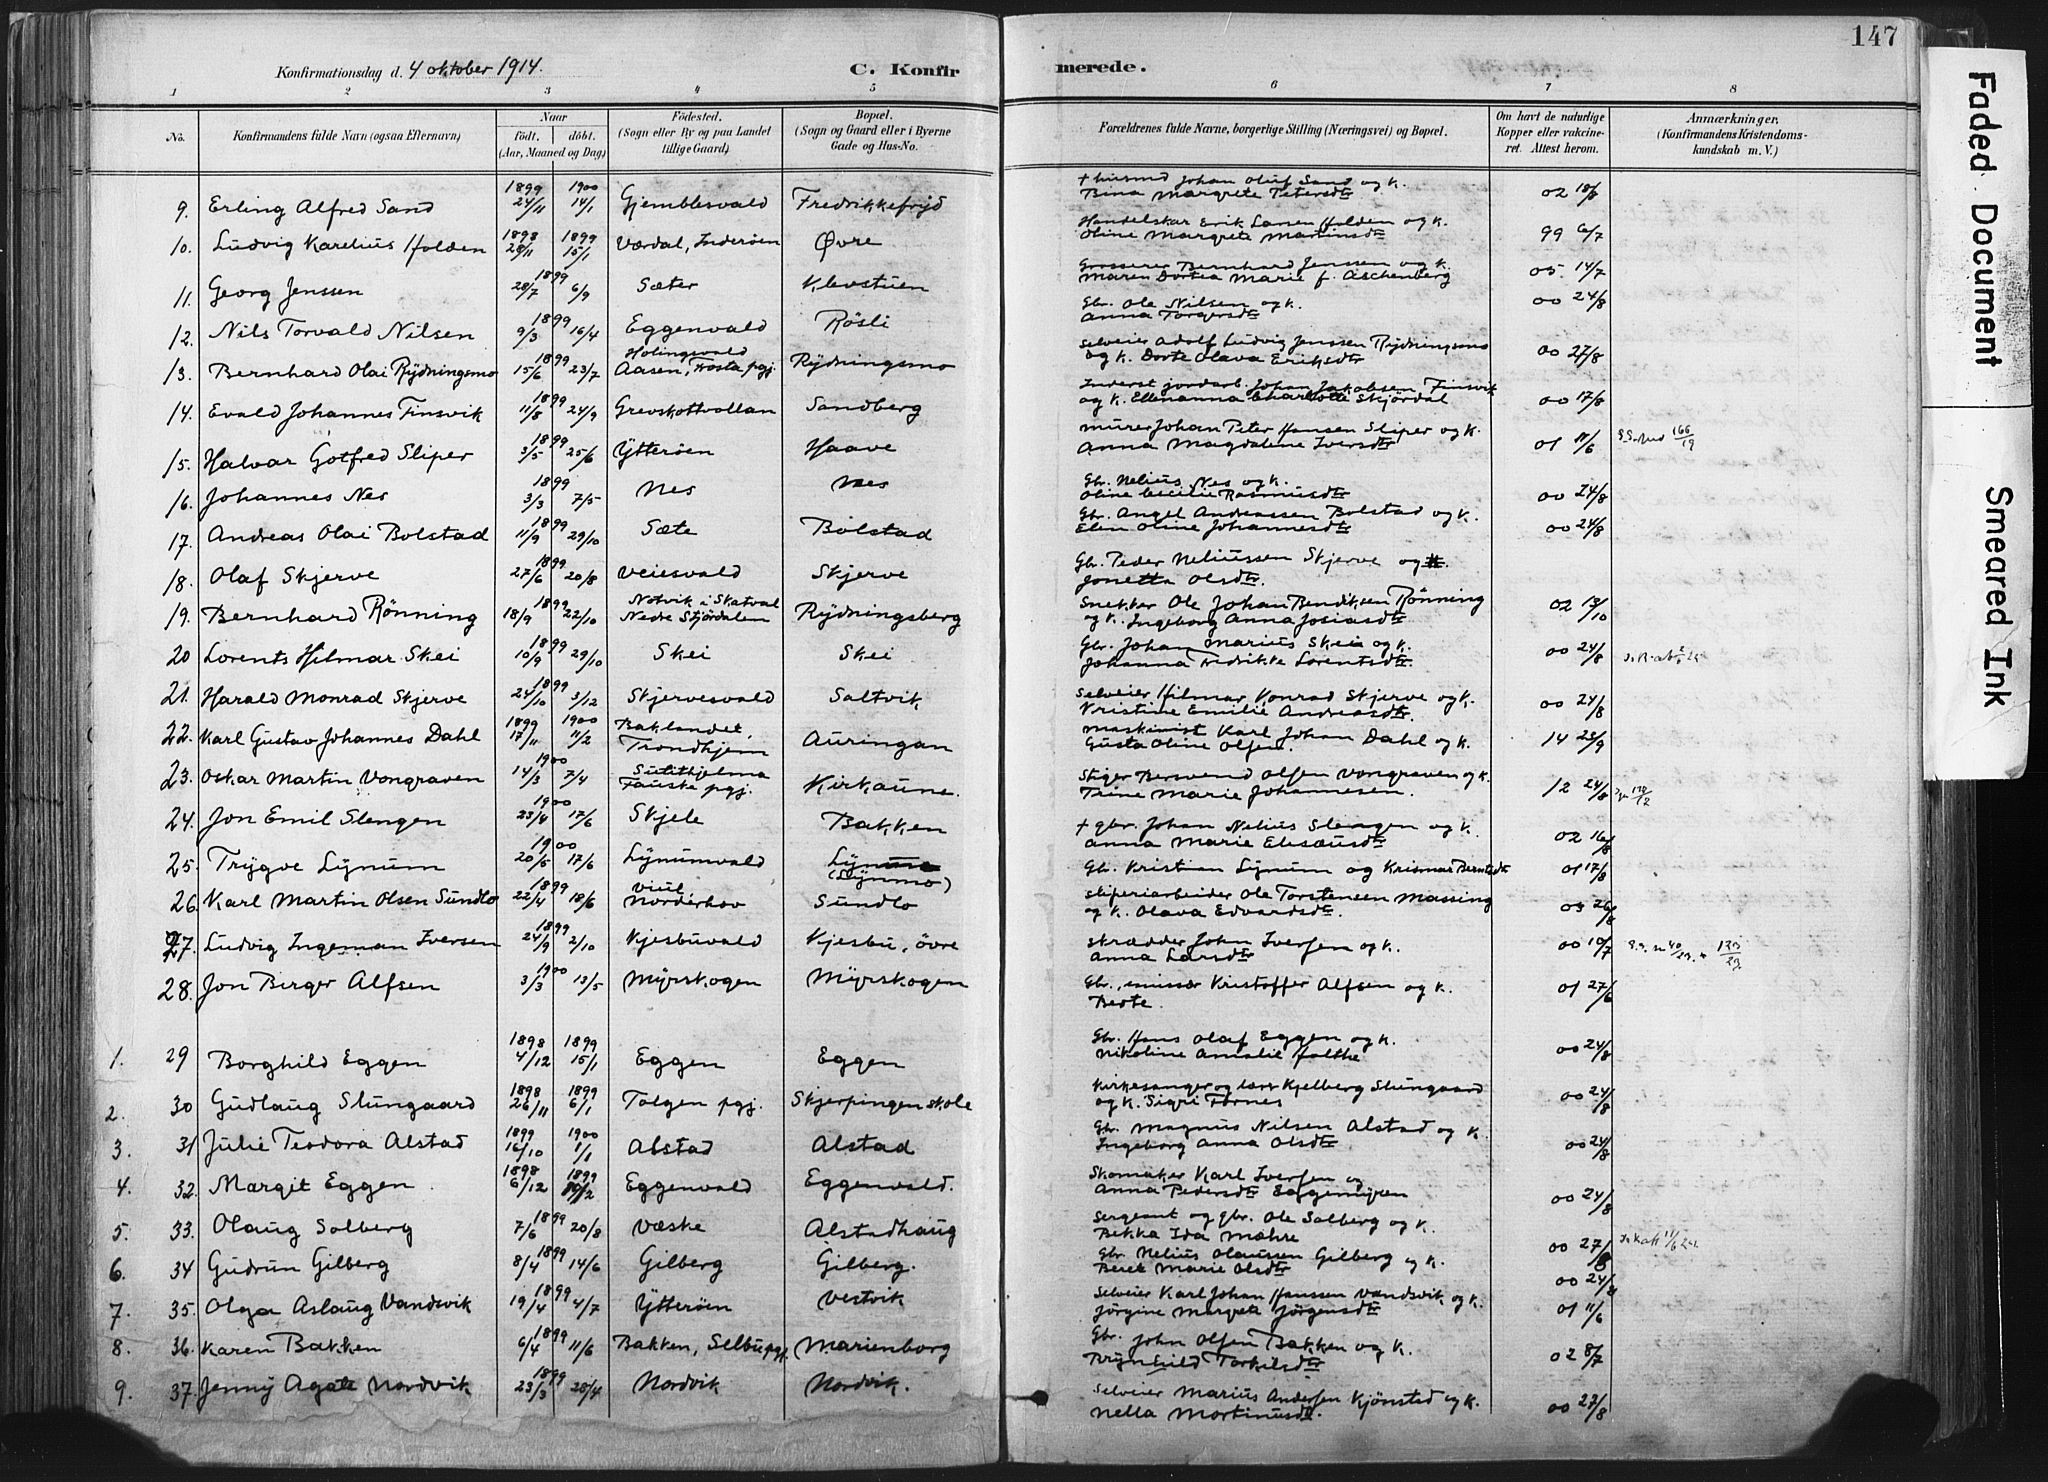 147
Konfirmationsdag d. 4 oktober 1914. C. Konfirmerede.
1 2 3 4 5 6 7 8
No. Konfirmandens fulde Navn (ogsaa Efternavn) Naar født. døbt. (Aar, Maaned og Dag) Fødested. (Sogn eller By og paa Landet tillige Gaard) Bopæl. (Sogn og Gaard eller i Byerne Gade og Hus-No. Forældrenes fulde Navne, borgerlige Stilling (Næringsvei) og Bopæl. Om havt de naturlige Kopper eller vaccineret. Attest herom. Anmærkninger. (Konfirmandens Kristendomskundskab m. V.)
9. Erling Alfred Sand 1899 24/11 1900 14/1 Gjemblesvald Fredrikkefryd + husmd Johan Oluf Sand og k. Bina Margrete Petersdtr 02
10. Ludvig Karelius Holden 1898 28/11 1899 15/1 Værdal, Inderøen Øvre Handelskar Erik Larsen Holden og k. Oline Margrete Martinsdtr 99 6/7
11. Georg Jenssen 1899 28/7 6/9 Sæter Klevstuen Grosserer Bernhard Jenssen og k. Maren Dortea Marie f. Aschenberg 05. 14/7
12. Nils Torvald Nilsen 1899 9/3 16/4 Eggenvald Røsli Gbr. Ole Nilsen og k. Anna Torgersdtr 00 24/8
13. Bernhard Olai Rydningsmo 1899 15/6 23/7 Holingsvald Aasen, Frosta pgj. Rydningsmo Selveier Adolf Ludvig Jenssen Rydningsmo og k. Dorte Olava Eriksdtr 00 27/8
14. Evald Johannes Finsvik 1899 11/8 24/9 Grevskottvollan Sandberg Inderst jordarb. Johan Jakobsen Finsvik og k. Ellenanna Charlotte Skjördal 00 17/8
15. Halvar Gotfred Sliper 1899 3/5 25/6 Ytterøen Haave murer Johan Peter Hansen Sliper og k. Anna Magdalene Iversdtr 01 11/6 166/19
16. Johannes Nes 1899 3/3 7/5 Nes Nes Gbr. Nelius Nes og k. Oline Cecilie Rasmusdtr 00 24/8
17. Andreas Olai Bolstad 1899 11/9 29/10 Sæte Bolstad Gbr. Angel Andreassen Bolstad og k. Elen Oline Johannesdtr 00 24/8
18. Olaf Skjerve 1899 27/6 20/8 Veiesvald Skjerve Gbr. Peder Neliussen Skjerve og k. Jonetta Olsdtr.
19. Bernhard Rönning 1899 18/9 22/10 Notvik i Skatval Nedre Stjördalen Rydningsberg Snekker Ole Johan Bendiksen Rönning og k. Ingeborg Anna Josiasdtr 02 13/10
20 Lorents Hilmar Skei 1899 10/9 29/10 Skei Skei Gbr. Johan Marius Skei og k. Johanna Fredrikke Lorentsdtr. 00 24/8
21. Harald Monrad Skjerve 1899 24/10 3/12 Skjervesvald Saltvik Selveier Hilmar Konrad Skjerve og k. Kristine Emilie Andreasdtr. 00 24/8
22. Karl Gustav Johannes Dahl 1899 17/11 1900 11/2 Baklandet, Trondhjem Auringan Maskinist Karl Johan Dahl og k. Gusta Oline Olsen. 14 25/9
23. Oskar Martin Vongraven 1900 14/3 7/4 Sulithjelma Fauske pgj. Kirkaune. Stiger Bersvend Olsen Vongraven og k. Trine Marie Johannesen. 12 24/8
24. Jon Emil Slengen 1900 23/4 17/6 Skjele Bakken + gbr. Johan Nelius Slengen og k. Anna Marie Elisæusdtr 02 16/8
25. Trygve Lynum 1900 20/5 17/6 Lynumvald (Lynmo) Gb. Kristian Lynum og Krismar Berntsdtr 01 17/8
26. Karl Martin Olsen Sundlo 1899 22/4 18/6 Viul Norderhov Sundlo Sliperiarbeider Ole Torstensen Massing og k. Olava Edvardsdtr. 03 26/8
27. Ludvig Ingeman Iversen 1899 24/9 2/10 Kjesbuvald Kjesbu, övre Skrædder John Iversen og k. Anna Larsdtr 00 10/7
28. Jon Birger Alfsen 1900 3/3 13/5 Myrskogen Myrskogen Gbr., emissær Kristoffer Alfsen og k. Berte. 01 27/6
1. 29 Borghild Eggen 1898 4/12 1899 15/1 Eggen Eggen Gbr. Hans Olaf Eggen og k. Nikoline Amalie Holthe 00 24/8
2. 30 Gudlaug Slungaard 1898 26/11 1899 6/1 Tolgen pgj. Skjerpingen skole Kirkesanger og lærer Kjelberg Slungaard og k. Sigri Fornes 00 24/8
3. 31 Julie Teodora Alstad 1899 16/10 1900 1/1 Alstad Alstad Gbr. Magnus Nilsen Alstad og k. Ingeborg Anna Olsdtr 00 24/8
4. 32. Margit Eggen 1898 6/12 1899 Eggenvald Eggenvald. Skomaker Karl Iversen og Anna Pedersdtr Eggemyren 00 24/8
5. 33. Olaug Solberg 1899 7/6 20/8 Væske Alstadhaug Sergeant og gbr. Ole Solberg og k. Bekka Ida Mæhre 00 27/8
6. 34 Gudrun Gilberg 1899 8/4 14/6 Gilberg Gilberg. Gbr Nelius Olaussen Gilberg og k. Beret Marie Olsdtr 00 24/8
7. 35. Olga Aslaug Vandsvik 1899 19/4 4/7 Ytterøen Vestvik Selveier Karl Johan Hanssen Vandsvik og k. Jörgine Margrete Jörgensdtr 01 11/6
8. 36. Karen Bakken 1899 6/4 11/6 Bakken, Selbu pgj. Marienborg Gbr. John Olsen Bakken og k. Brynhild Torkilsdtr 02 8/7
9. 37. Jenny Agate Nordvik 1899 23/3 28/4 Nordvik Nordvik. Selveier Marius Andersen Kjönstad og k. Nella Mortinusdtr. 00 27/8
Faded Document
Smeared Ink